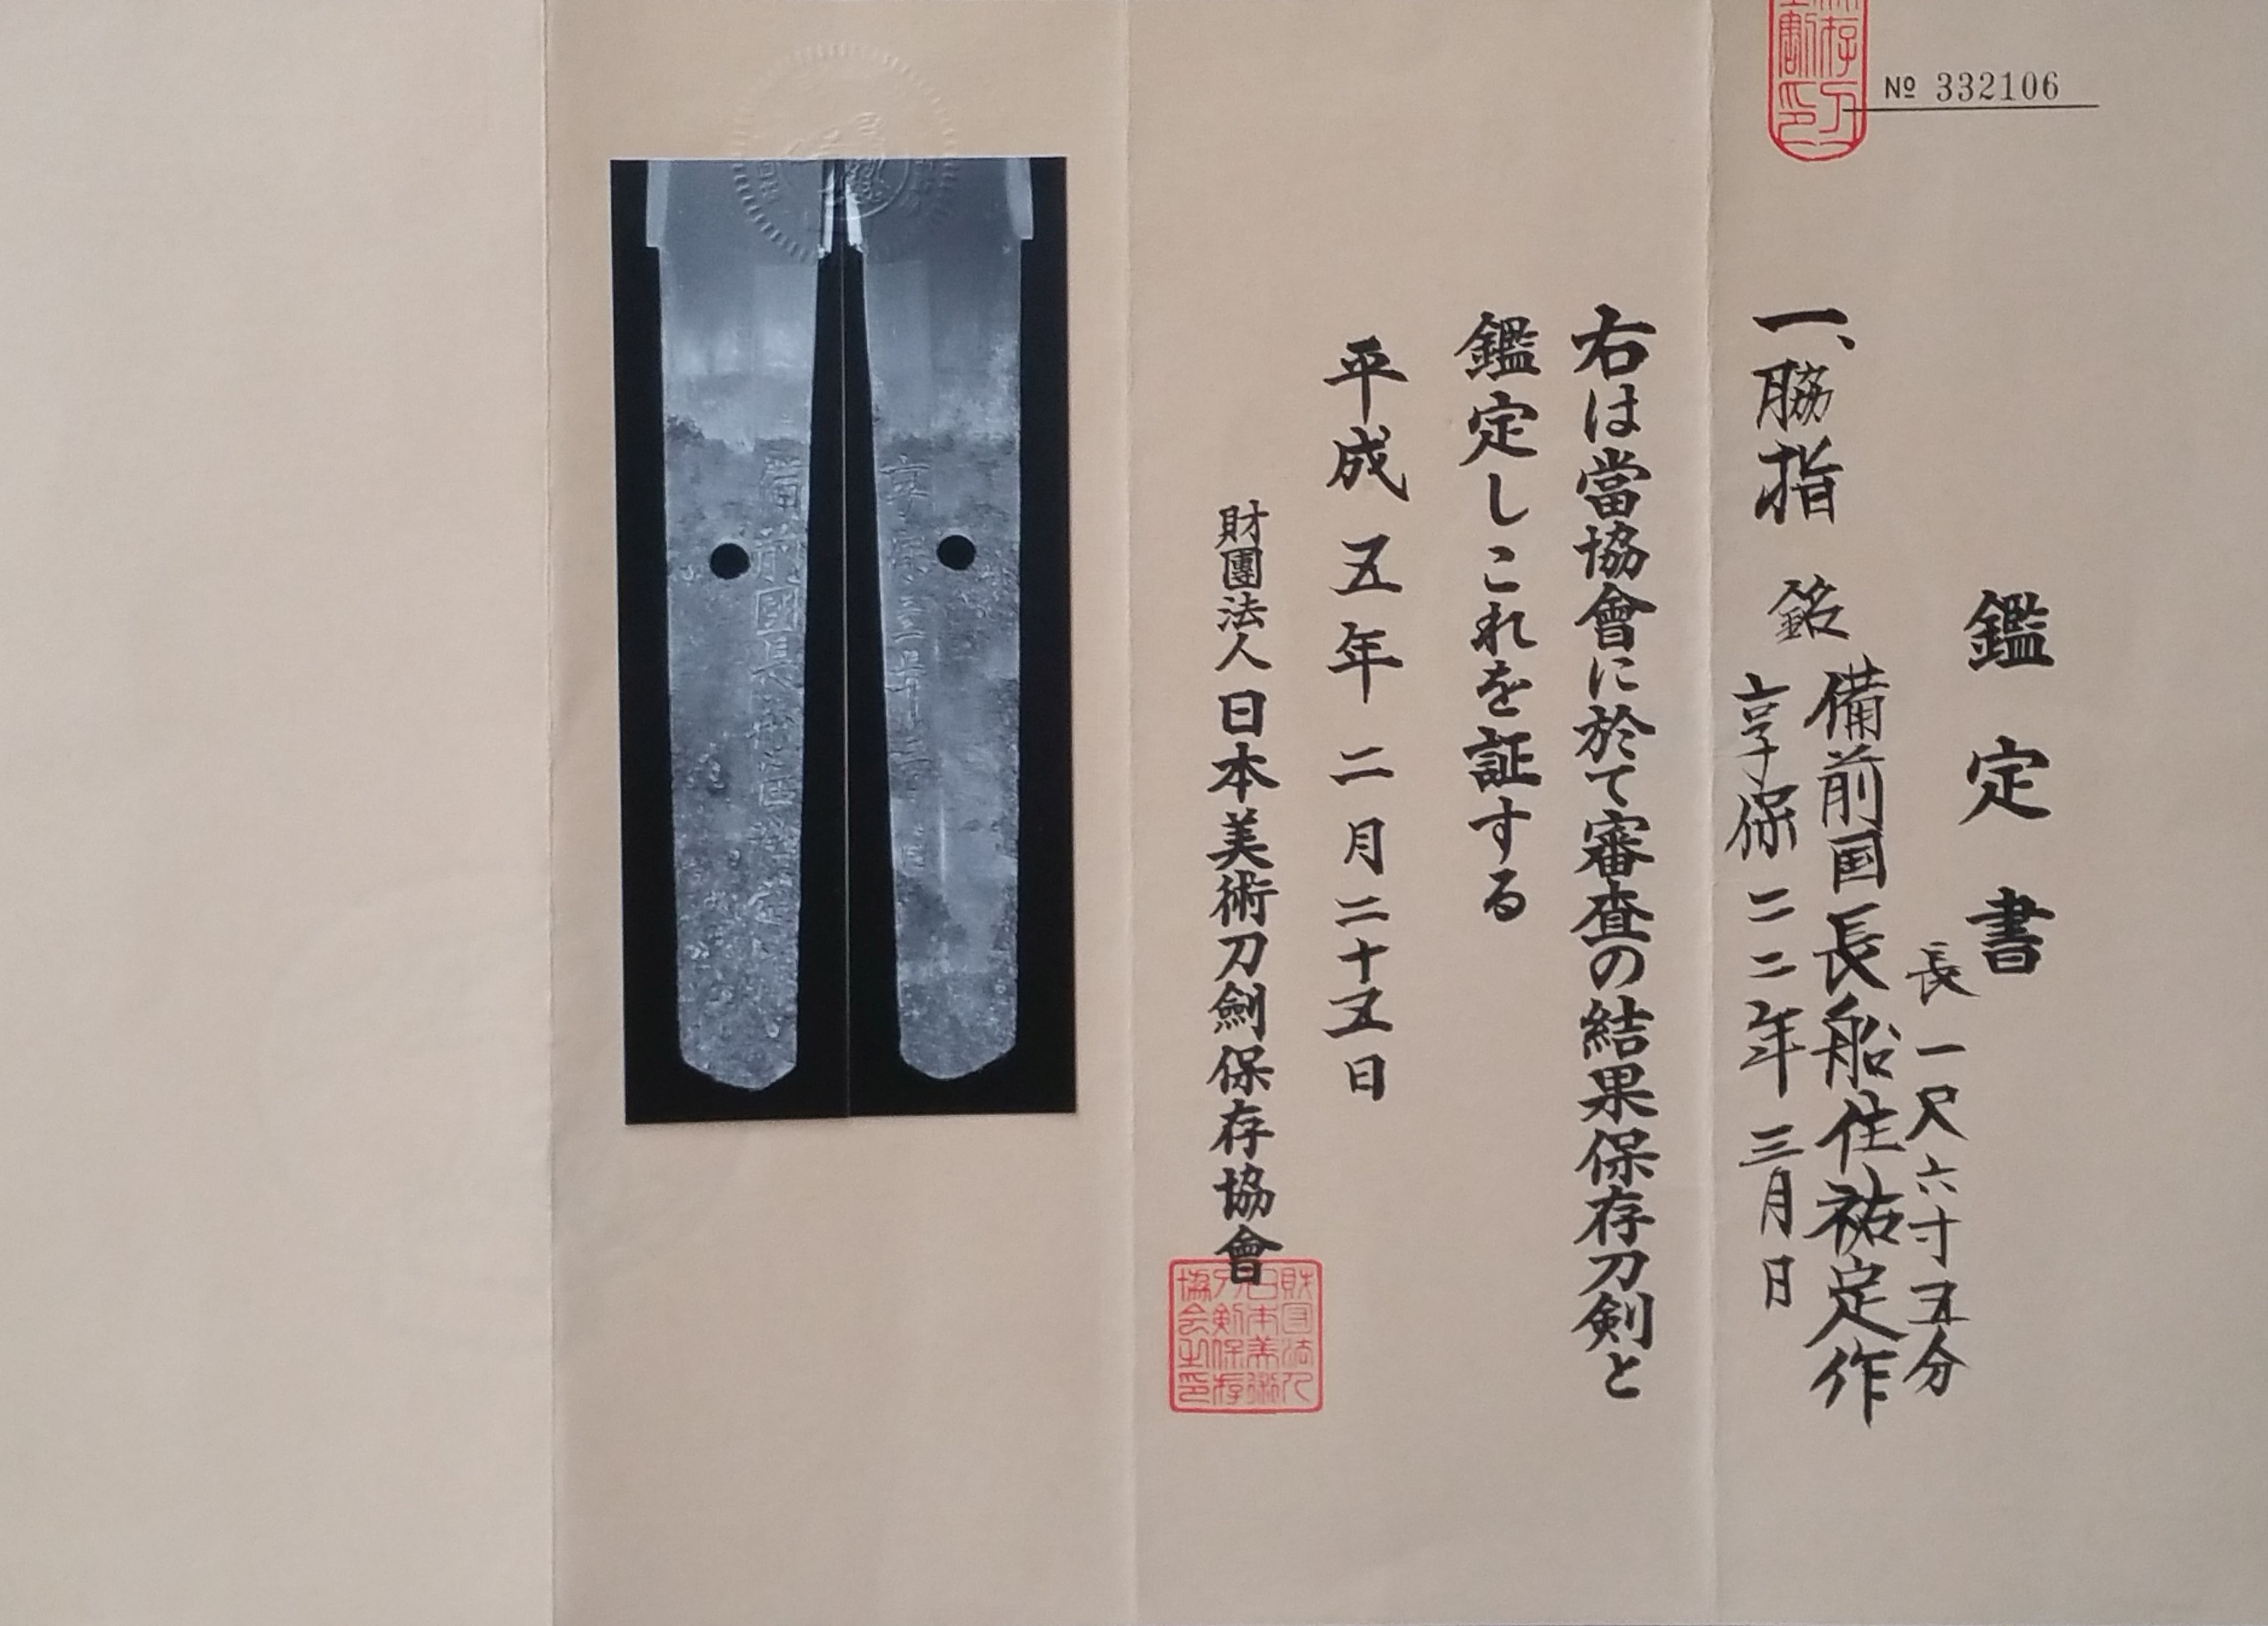 № 332106
鑑定書
長 一尺六寸五分
一、脇指 銘 備前国長船住祐定作
享保二二年三月日
右は當協會に於て審査の結果保存刀剣と
鑑定しこれを証する
平成五年二月二十五日
財團法人日本美術刀劍保存協會
財団法人
日本美術
刀剣保存
協会之印
享保
備前國長船住祐定